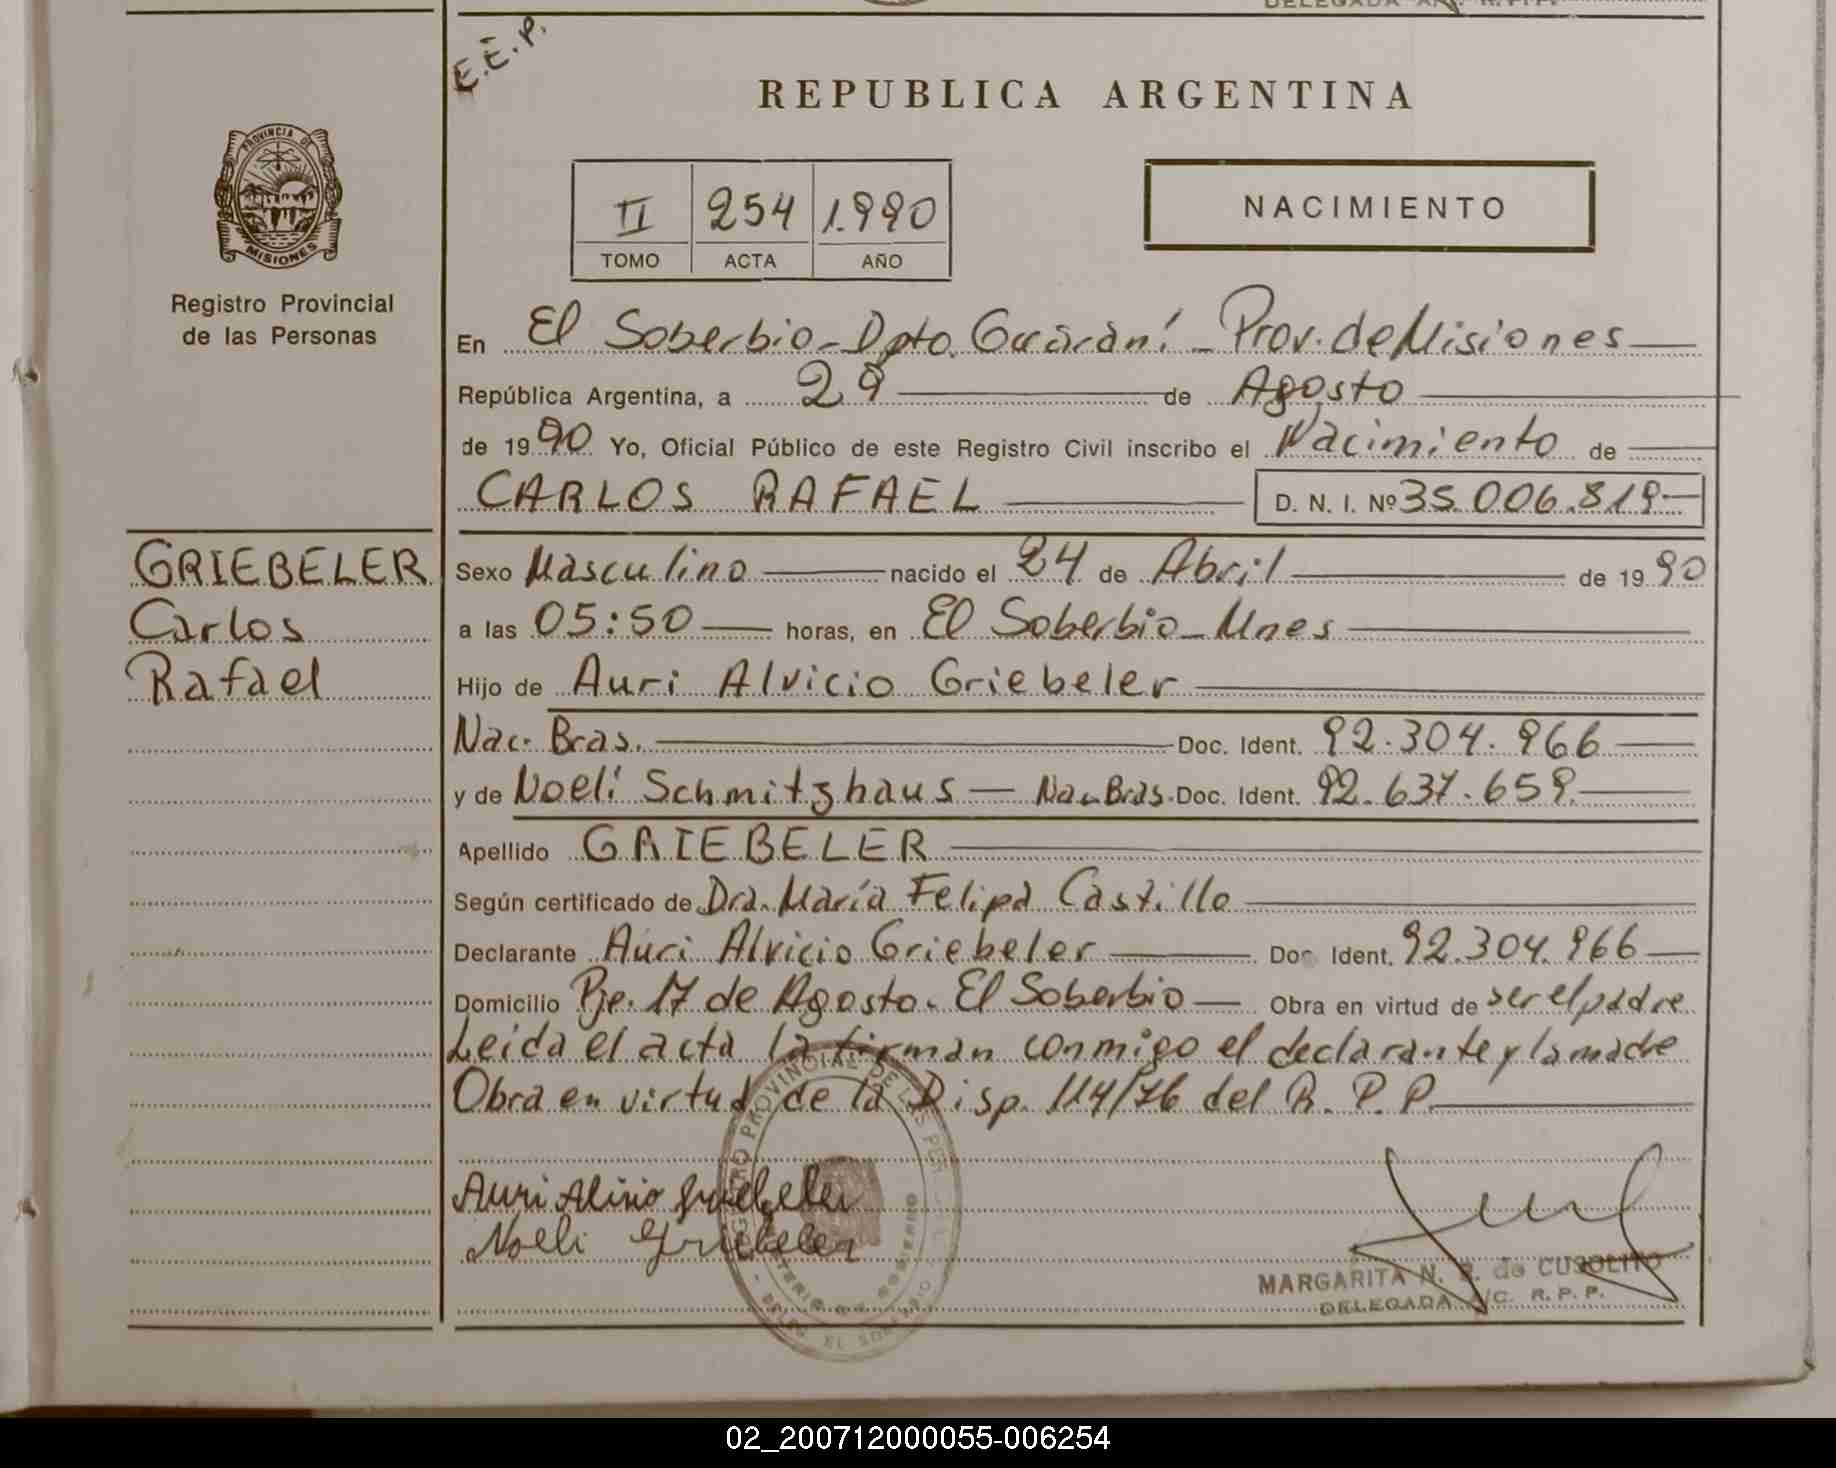 E.E.P.
REPUBLICA ARGENTINA
PROVINCIA DE
MISIONES
Registro Provincial
de las Personas
II 254 1.990
TOMO ACTA AÑO
NACIMIENTO
En El Soberbio - Dpto. Guaraní - Prov. de Misiones
República Argentina, a 29 de Agosto
de 1990 Yo, Oficial Público de este Registro Civil inscribo el Nacimiento de
CARLOS RAFAEL D. N. I. Nº 35.006.819
GRIEBELER
Carlos
Rafael
Sexo Masculino nacido el 24 de Abril de 1990
a las 05:50 horas, en El Soberbio - Mnes
Hijo de Auri Alvicio Griebeler
Nac. Bras. Doc. Ident. 92.304.966
y de Noelí Schmitzhaus — Nac. Bras. Doc. Ident. 92.637.659
Apellido GRIEBELER
Según certificado de Dra. María Felipa Castillo
Declarante Auri Alvicio Griebeler Doc Ident. 92.304.966
Domicilio Pje. 17 de Agosto - El Soberbio Obra en virtud de ser el padre
Leída el acta la firman conmigo el declarante y la madre
Obra en virtud de la Disp. 114/76 del R. P. P.
REGISTRO PROVINCIAL DE LAS PER
Auri Alvisio Griebeler
Noeli Griebeler
MARGARITA N. de CUSOLITO
DELEGADA A/C. R. P. P.
02_200712000055-006254